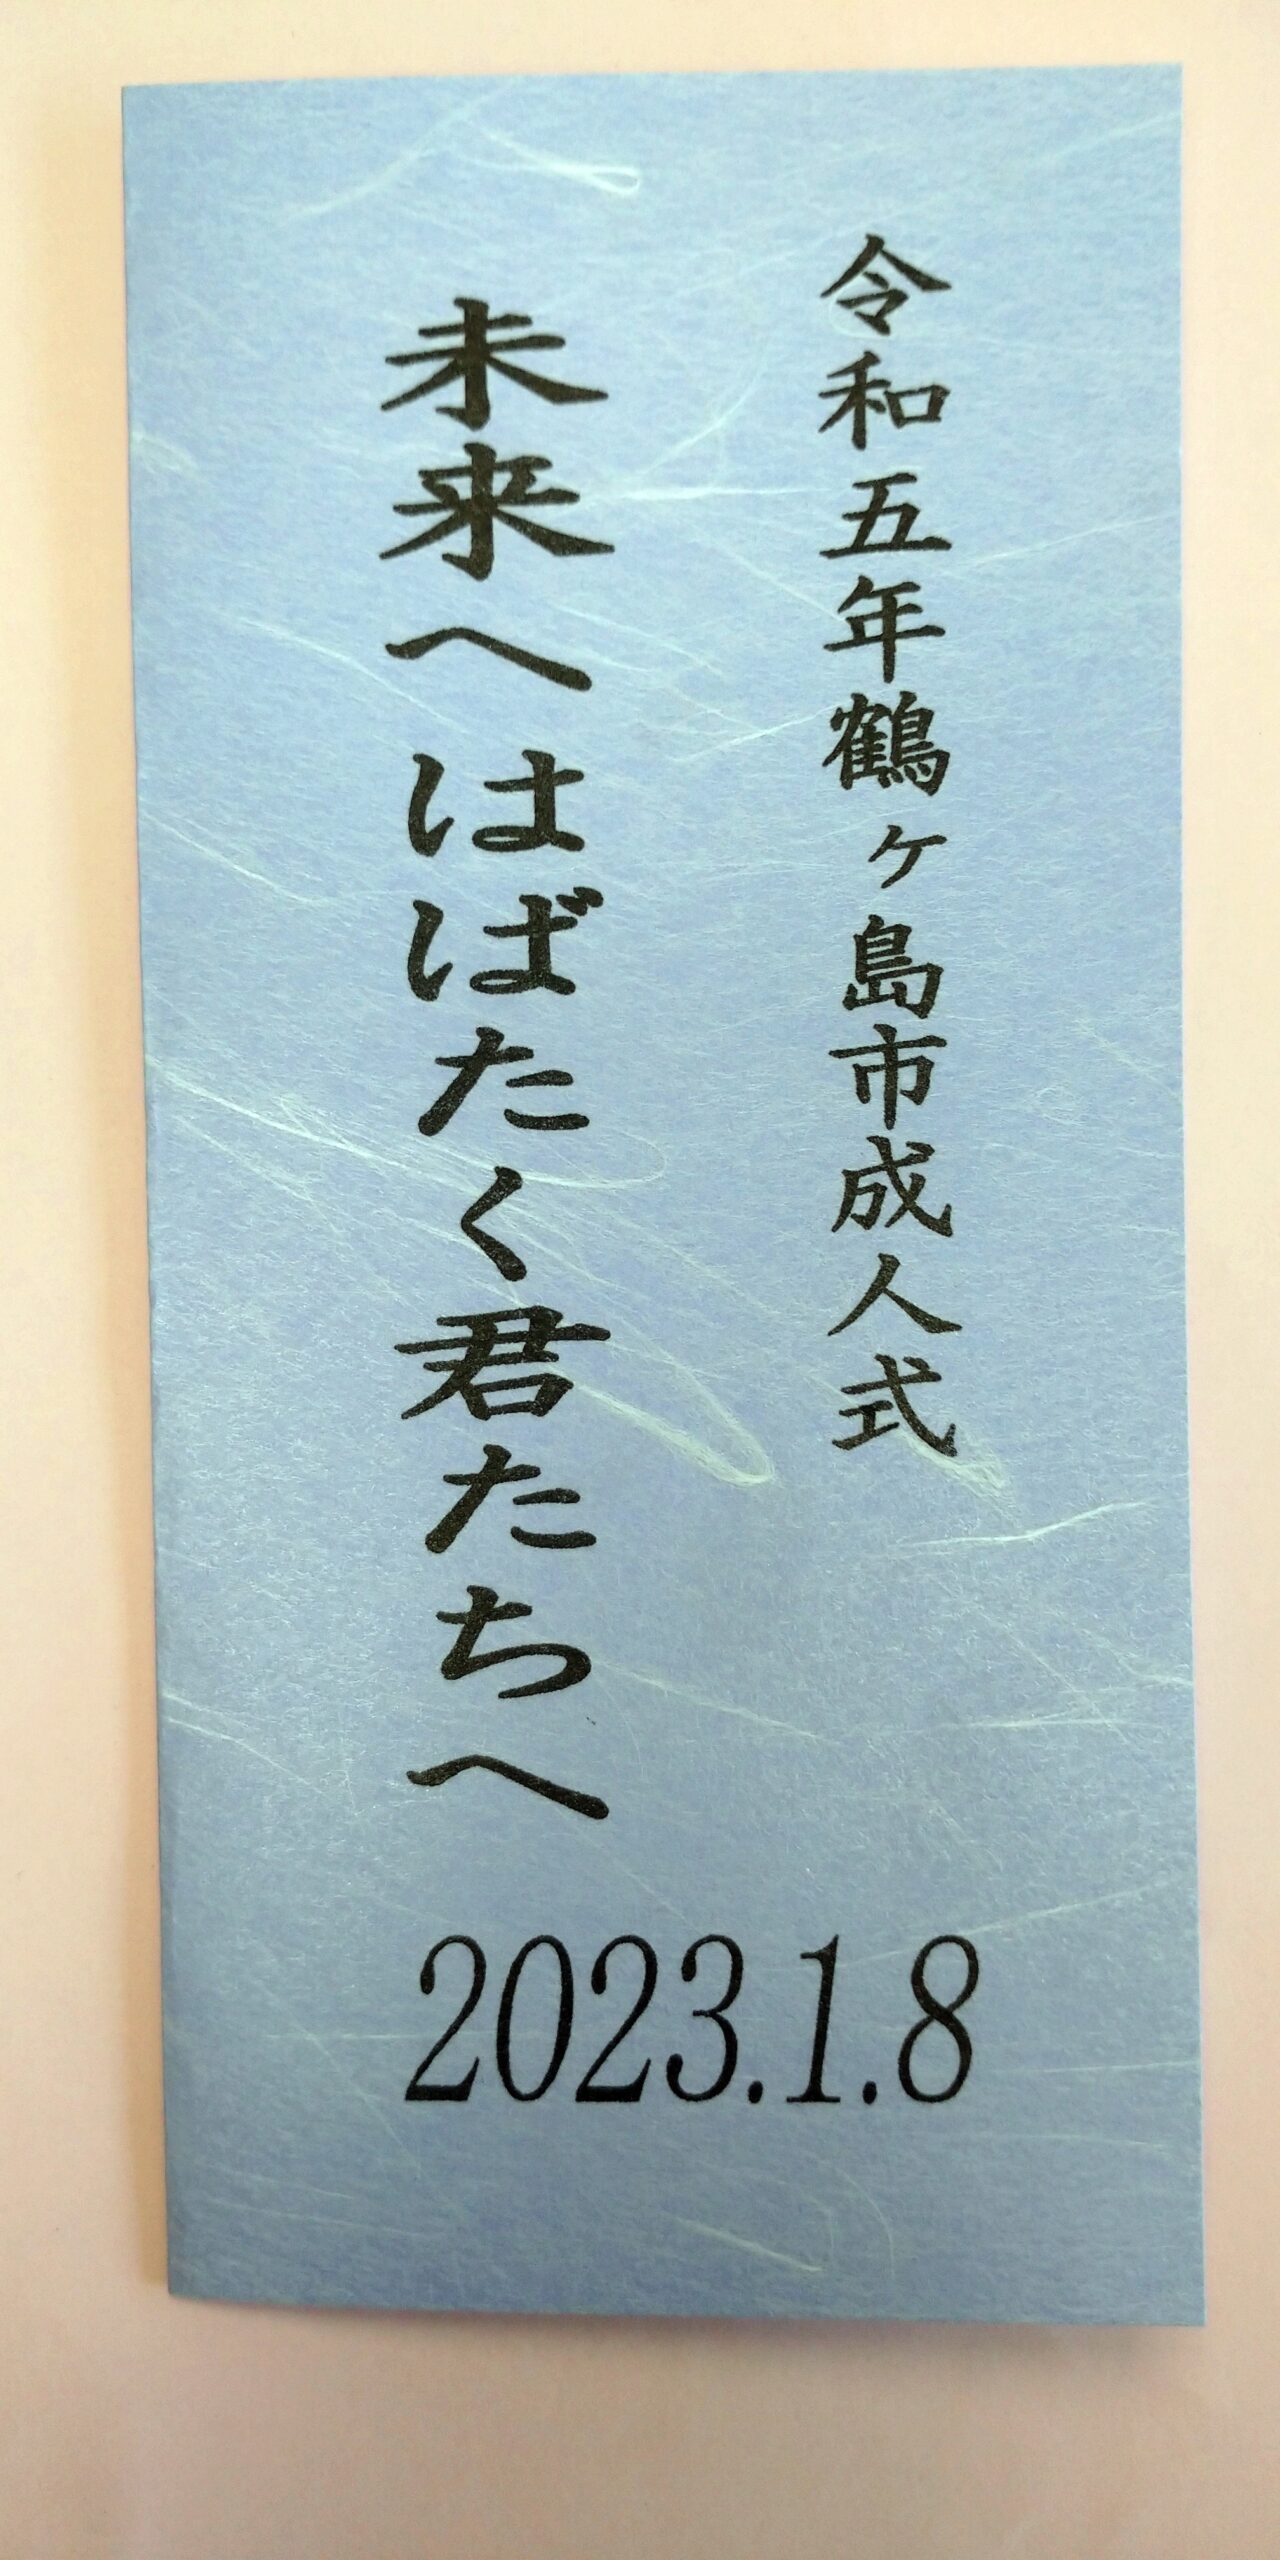 令和五年鶴ヶ島市成人式
未来へはばたく君たちへ
2023.1.8